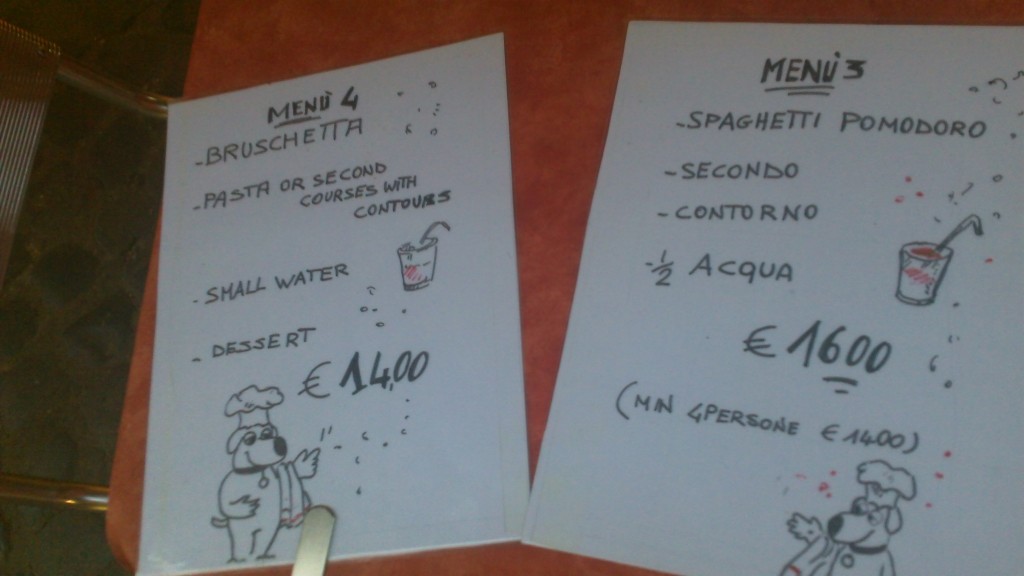 MENÙ 4
- BRUSCHETTA
- PASTA OR SECOND
COURSES WITH
CONTOURS
- SMALL WATER
- DESSERT
€ 14,00
MENÙ 3
- SPAGHETTI POMODORO
- SECONDO
- CONTORNO
- 1/2 ACQUA
€ 1600
(MIN 4 PERSONE € 1400)